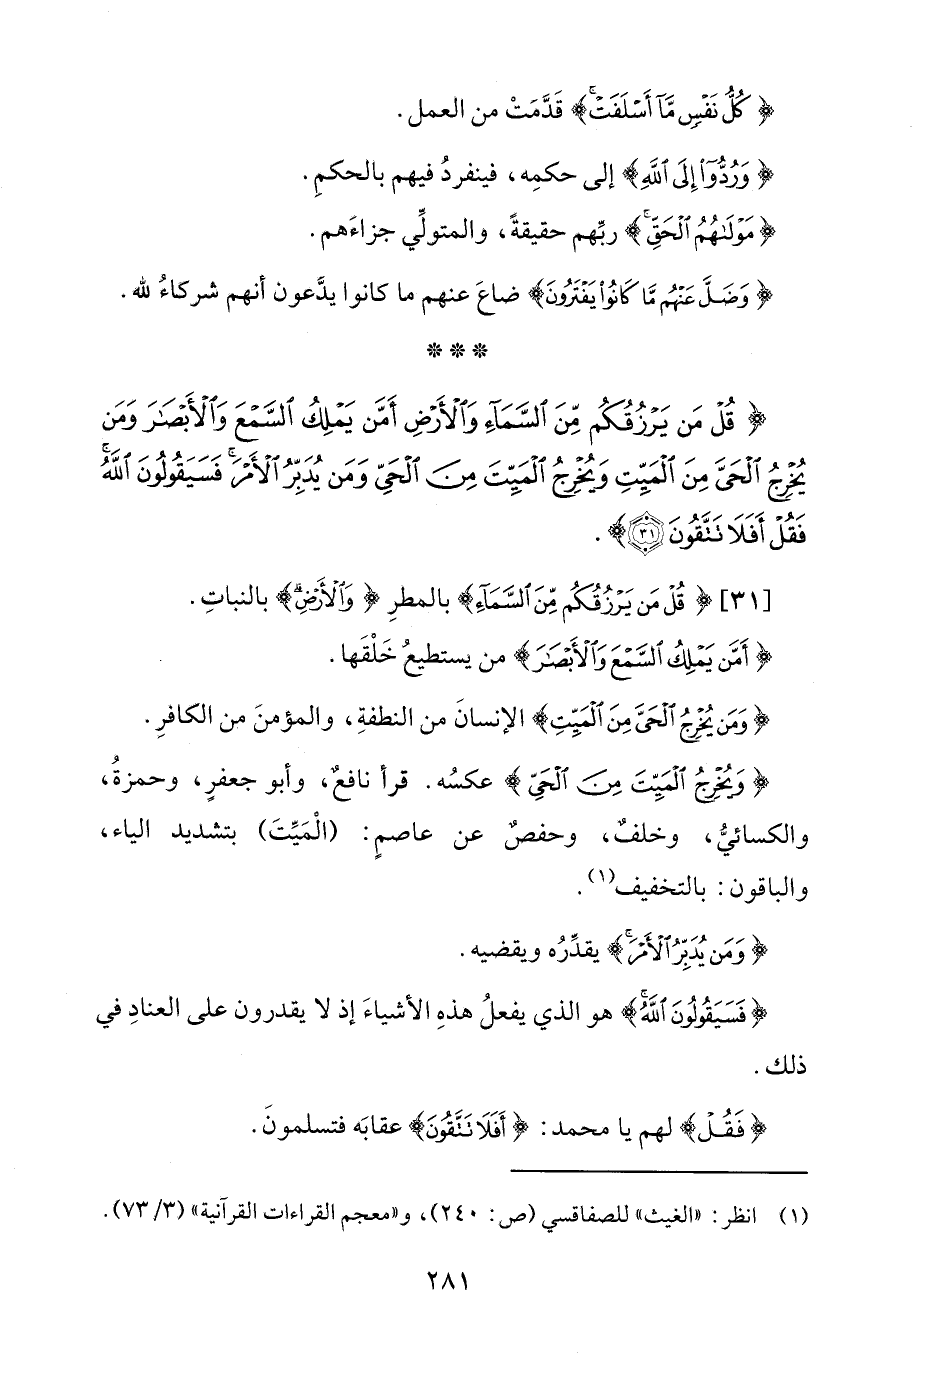 ﴿ كُلُّ نَفْسٍ مَّآ أَسْلَفَتْ ۚ ﴾ قَدَّمَتْ من العمل .
﴿ وَرُدُّوٓا۟ إِلَى ٱللَّهِ ﴾ إلى حكمِه، فينفردُ فيهم بالحكمِ.
﴿ مَوْلَىٰهُمُ ٱلْحَقِّ ۚ ﴾ ربِّهم حقيقةً، والمتولِّي جزاءَهم.
﴿ وَضَلَّ عَنْهُم مَّا كَانُوا۟ يَفْتَرُونَ ﴾ ضاعَ عنهم ما كانوا يدَّعون أنهم شركاءُ لله .
* * *
﴿ قُلْ مَن يَرْزُقُكُم مِّنَ ٱلسَّمَآءِ وَٱلْأَرْضِ أَمَّن يَمْلِكُ ٱلسَّمْعَ وَٱلْأَبْصَـٰرَ وَمَن
يُخْرِجُ ٱلْحَىَّ مِنَ ٱلْمَيِّتِ وَيُخْرِجُ ٱلْمَيِّتَ مِنَ ٱلْحَىِّ وَمَن يُدَبِّرُ ٱلْأَمْرَ ۚ فَسَيَقُولُونَ ٱللَّهُ ۚ
فَقُلْ أَفَلَا تَتَّقُونَ ۝٣١ ﴾ .
[٣١] ﴿ قُلْ مَن يَرْزُقُكُم مِّنَ ٱلسَّمَآءِ ﴾ بالمطرِ ﴿ وَٱلْأَرْضِ ۗ ﴾ بالنباتِ .
﴿ أَمَّن يَمْلِكُ ٱلسَّمْعَ وَٱلْأَبْصَـٰرَ ﴾ من يستطيعُ خَلْقَها .
﴿ وَمَن يُخْرِجُ ٱلْحَىَّ مِنَ ٱلْمَيِّتِ ﴾ الإنسانَ من النطفةِ، والمؤمنَ من الكافرِ .
﴿ وَيُخْرِجُ ٱلْمَيِّتَ مِنَ ٱلْحَىِّ ﴾ عكسُه. قرأ نافعٌ، وأبو جعفرٍ، وحمزةُ،
والكسائيُّ، وخلفٌ، وحفصٌ عن عاصمٍ: (الْمَيِّتَ) بتشديد الياء،
والباقون: بالتخفيف(١) .
﴿ وَمَن يُدَبِّرُ ٱلْأَمْرَ ۚ ﴾ يقدِّرُه ويقضيه .
﴿ فَسَيَقُولُونَ ٱللَّهُ ۚ ﴾ هو الذي يفعلُ هذهِ الأشياءَ إذ لا يقدرون على العنادِ في
ذلك .
﴿ فَقُلْ ﴾ لهم يا محمد: ﴿ أَفَلَا تَتَّقُونَ ﴾ عقابَه فتسلمونَ .
(١) انظر: «الغيث» للصفاقسي (ص: ٢٤٠)، و«معجم القراءات القرآنية» (٣/ ٧٣).
٢٨١